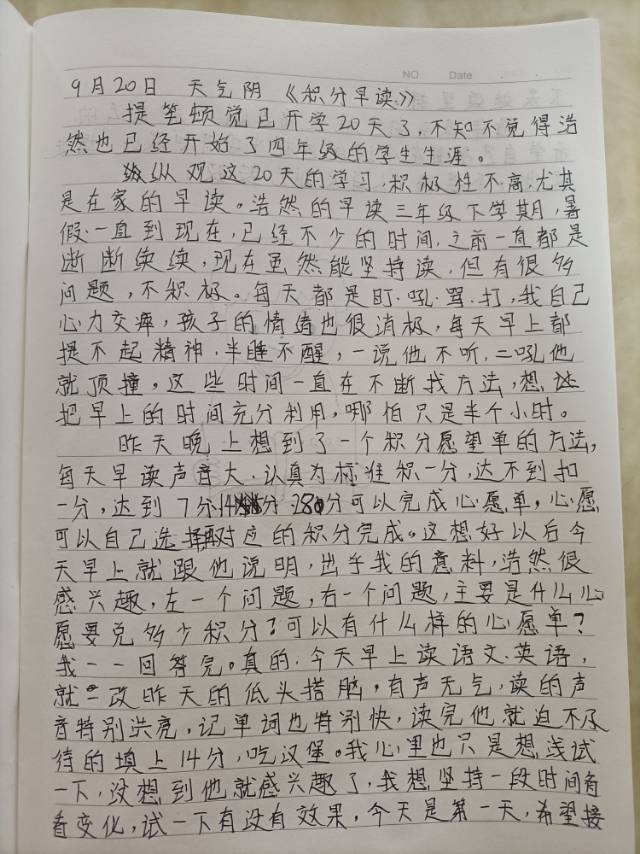 NO Date
9月20日 天气阴 《积分早读》
提笔顿觉已开学20天了,不知不觉得浩
然也已经开始了四年级的学生生涯。
纵观这20天的学习,积极性不高,尤其
是在家的早读。浩然的早读三年级下学期,暑
假一直到现在,已经不少的时间,之前一直都是
断断续续,现在虽然能坚持读,但有很多
问题,不积极。每天都是盯.吼.骂.打,我自己
心力交瘁,孩子的情绪也很消极,每天早上都
提不起精神.半睡不醒,一说他不听,二吼他
就顶撞。这些时间一直在不断找方法,想
把早上的时间充分利用,哪怕只是半个小时。
昨天晚上想到了一个积分愿望单的方法,
每天早读声音大.认真为标准积一分,达不到扣
一分,达到7分14分.28分可以完成心愿单,心愿
可以自己选择对应的积分完成。这想好以后今
天早上就跟他说明,出乎我的意料,浩然很
感兴趣,左一个问题,右一个问题,主要是什么心
愿要兑多少积分?可以有什么样的心愿单?
我一一回答完。真的.今天早上读语文.英语,
就一改昨天的低头搭脑,有声无气,读的声
音特别洪亮,记单词也特别快,读完他就迫不及
待的填上14分,吃汉堡。我心里也只是想浅试
一下,没想到他就感兴趣了,我想坚持一段时间看
看变化,试一下有没有效果,今天是第一天,希望接